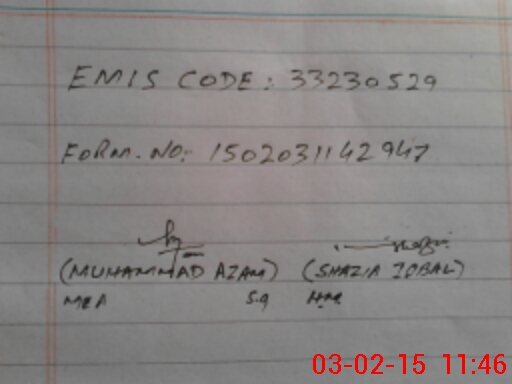 EMIS CODE: 33230529
FORM. NO: 1502031142947
(MUHAMMAD AZAM) (SHAZIA IQBAL)
MEA 59 HM
03-02-15 11:46